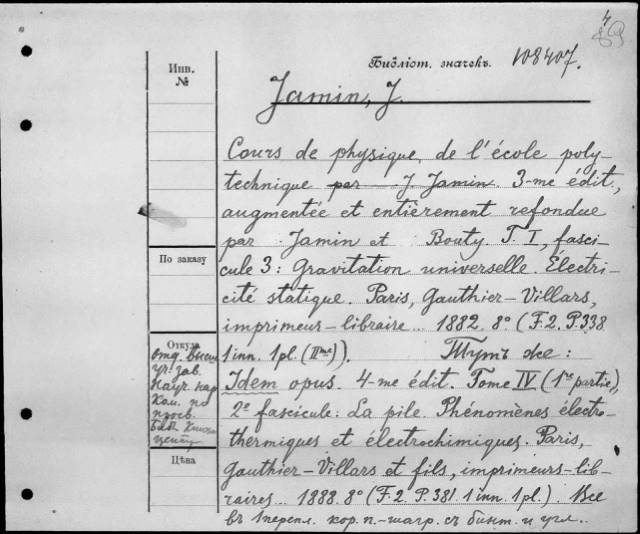 4
89
Библіот. значекъ. 108407.
Инв.
№
Jamin, J.
Cours de physique de l'école poly-
technique par J. Jamin. 3-me édit.,
augmentée et entièrement refondue
par Jamin et Bouty. T. I, fasci-
cule 3: Gravitation universelle. Électri-
cité statique. Paris, Gauthier-Villars,
imprimeur-libraire... 1882. 8° (F.2. P.338
1 inn. 1 pl. (IIme)). Тутъ же:
Idem opus. 4-me édit. Tome IV (1re partie),
2e fascicule: La pile. Phénomènes électro-
thermiques et électrochimiques. Paris,
Gauthier-Villars et fils, imprimeurs-lib-
raires... 1888. 8° (F.2. P.381. 1 inn. 1 pl.). Все
въ 1 перепл. кор. п.-шагр. съ бинт. и угл..
По заказу
Откуда
отд. высш
уч. зав.
Науч. нар
Ком. по
просв.
Цѣна